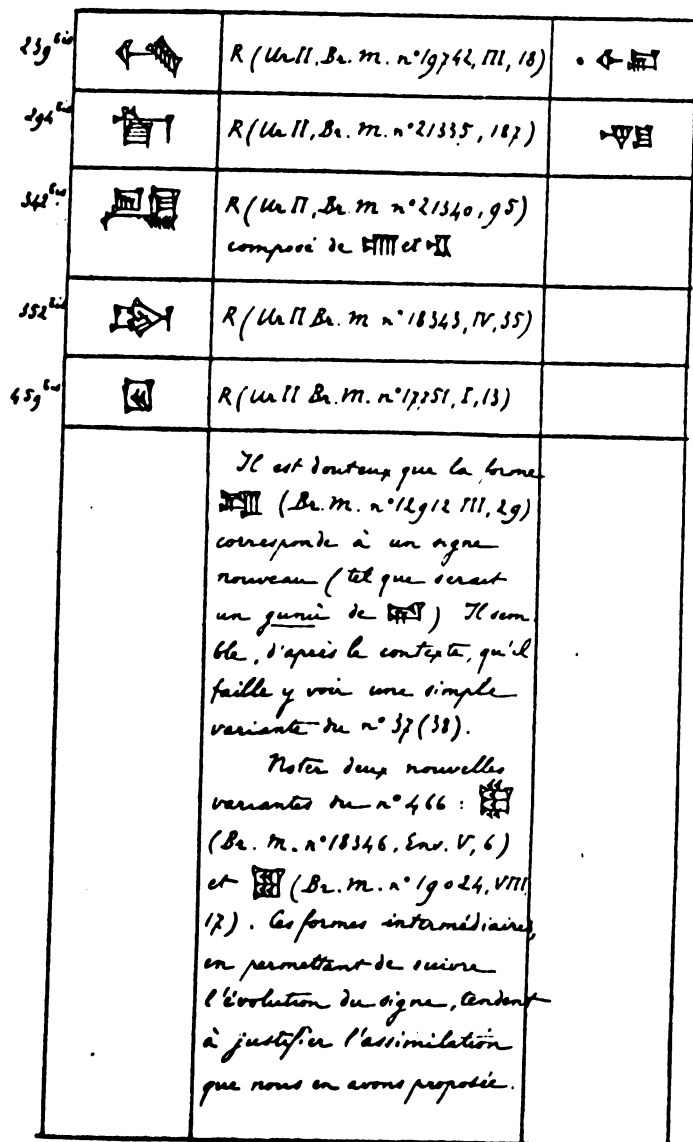 239bis R (Ur II, Br. m. n° 19742, III, 18)
294bis R (Ur II, Br. m. n° 21335, 187)
342bis R (Ur II, Br. m n° 21340, 95)
composé de et
352bis R (Ur II Br. m n° 18343, IV, 35)
459bis R (Ur II Br. m. n° 17751, I, 13)
Il est douteux que la forme
(Br. m. n° 12912 III, 29)
corresponde à un signe
nouveau (tel que serait
un gunû de ) Il sem
ble, d'après le contexte, qu'il
faille y voir une simple
variante du n° 37 (38).
Noter deux nouvelles
variantes du n° 466 :
(Br. m. n° 18346, Env. V, 6)
et (Br. m. n° 19024, VIII,
17). Ces formes intermédiaires,
en permettant de suivre
l'évolution du signe, tendent
à justifier l'assimilation
que nous en avons proposée.